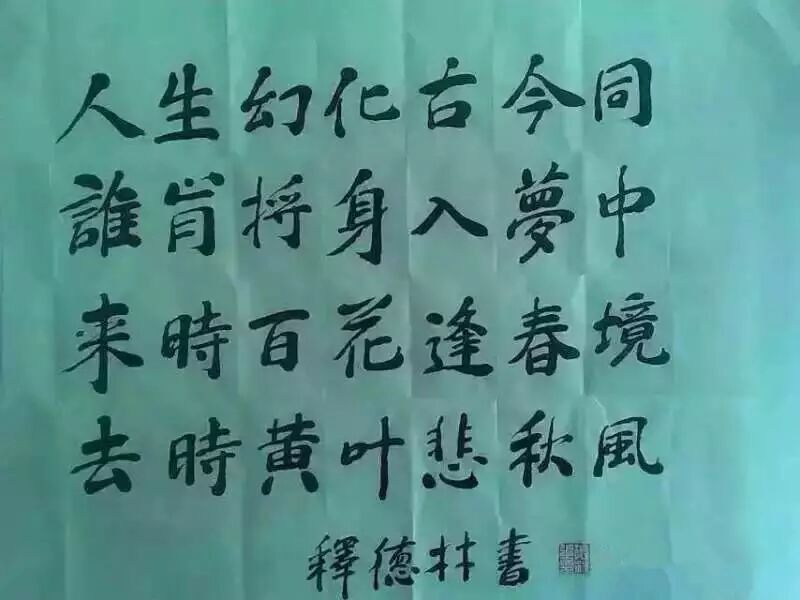 人生幻化古今同
誰肯將身入夢中
来時百花逢春境
去時黄叶悲秋風
釋德林書